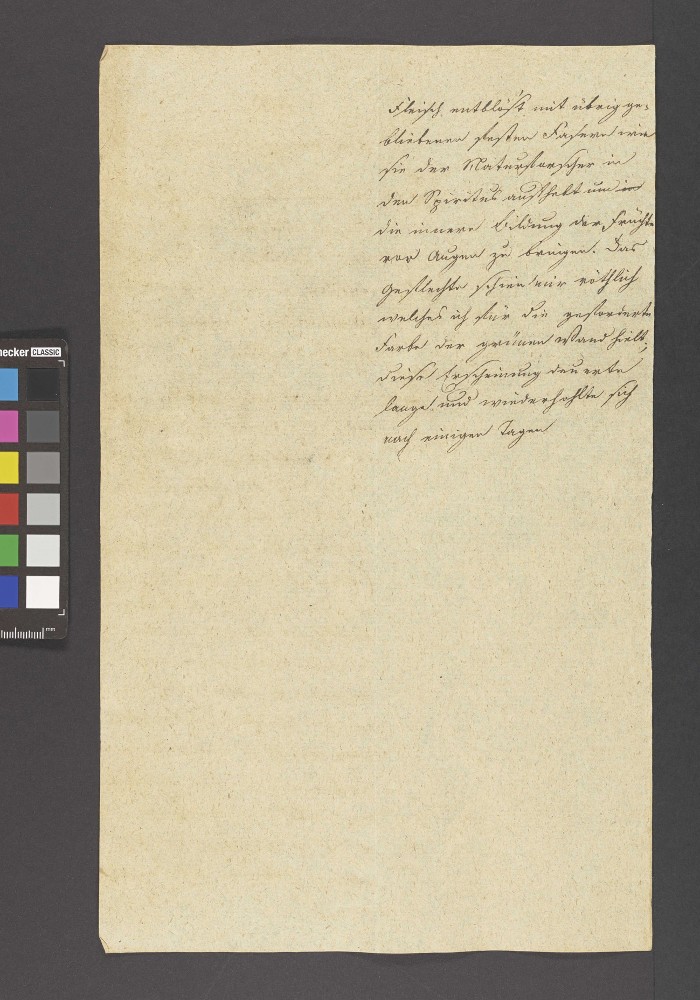 Fleisch, entblöst mit übrig ge-
bliebenen festen Fasern wie
sie der Naturforscher in
den Spiritus aufhebt um
die innere Bildung der Früchte
vor Augen zu bringen. Das
Geflechte schien mir röthlich
welches ich für die geforderte
Farbe der grünen Wand hielt;
diese Erscheinung deuerte
lange und wiederhohlte sich
nach einigen Tagen
necker CLASSIC
mm